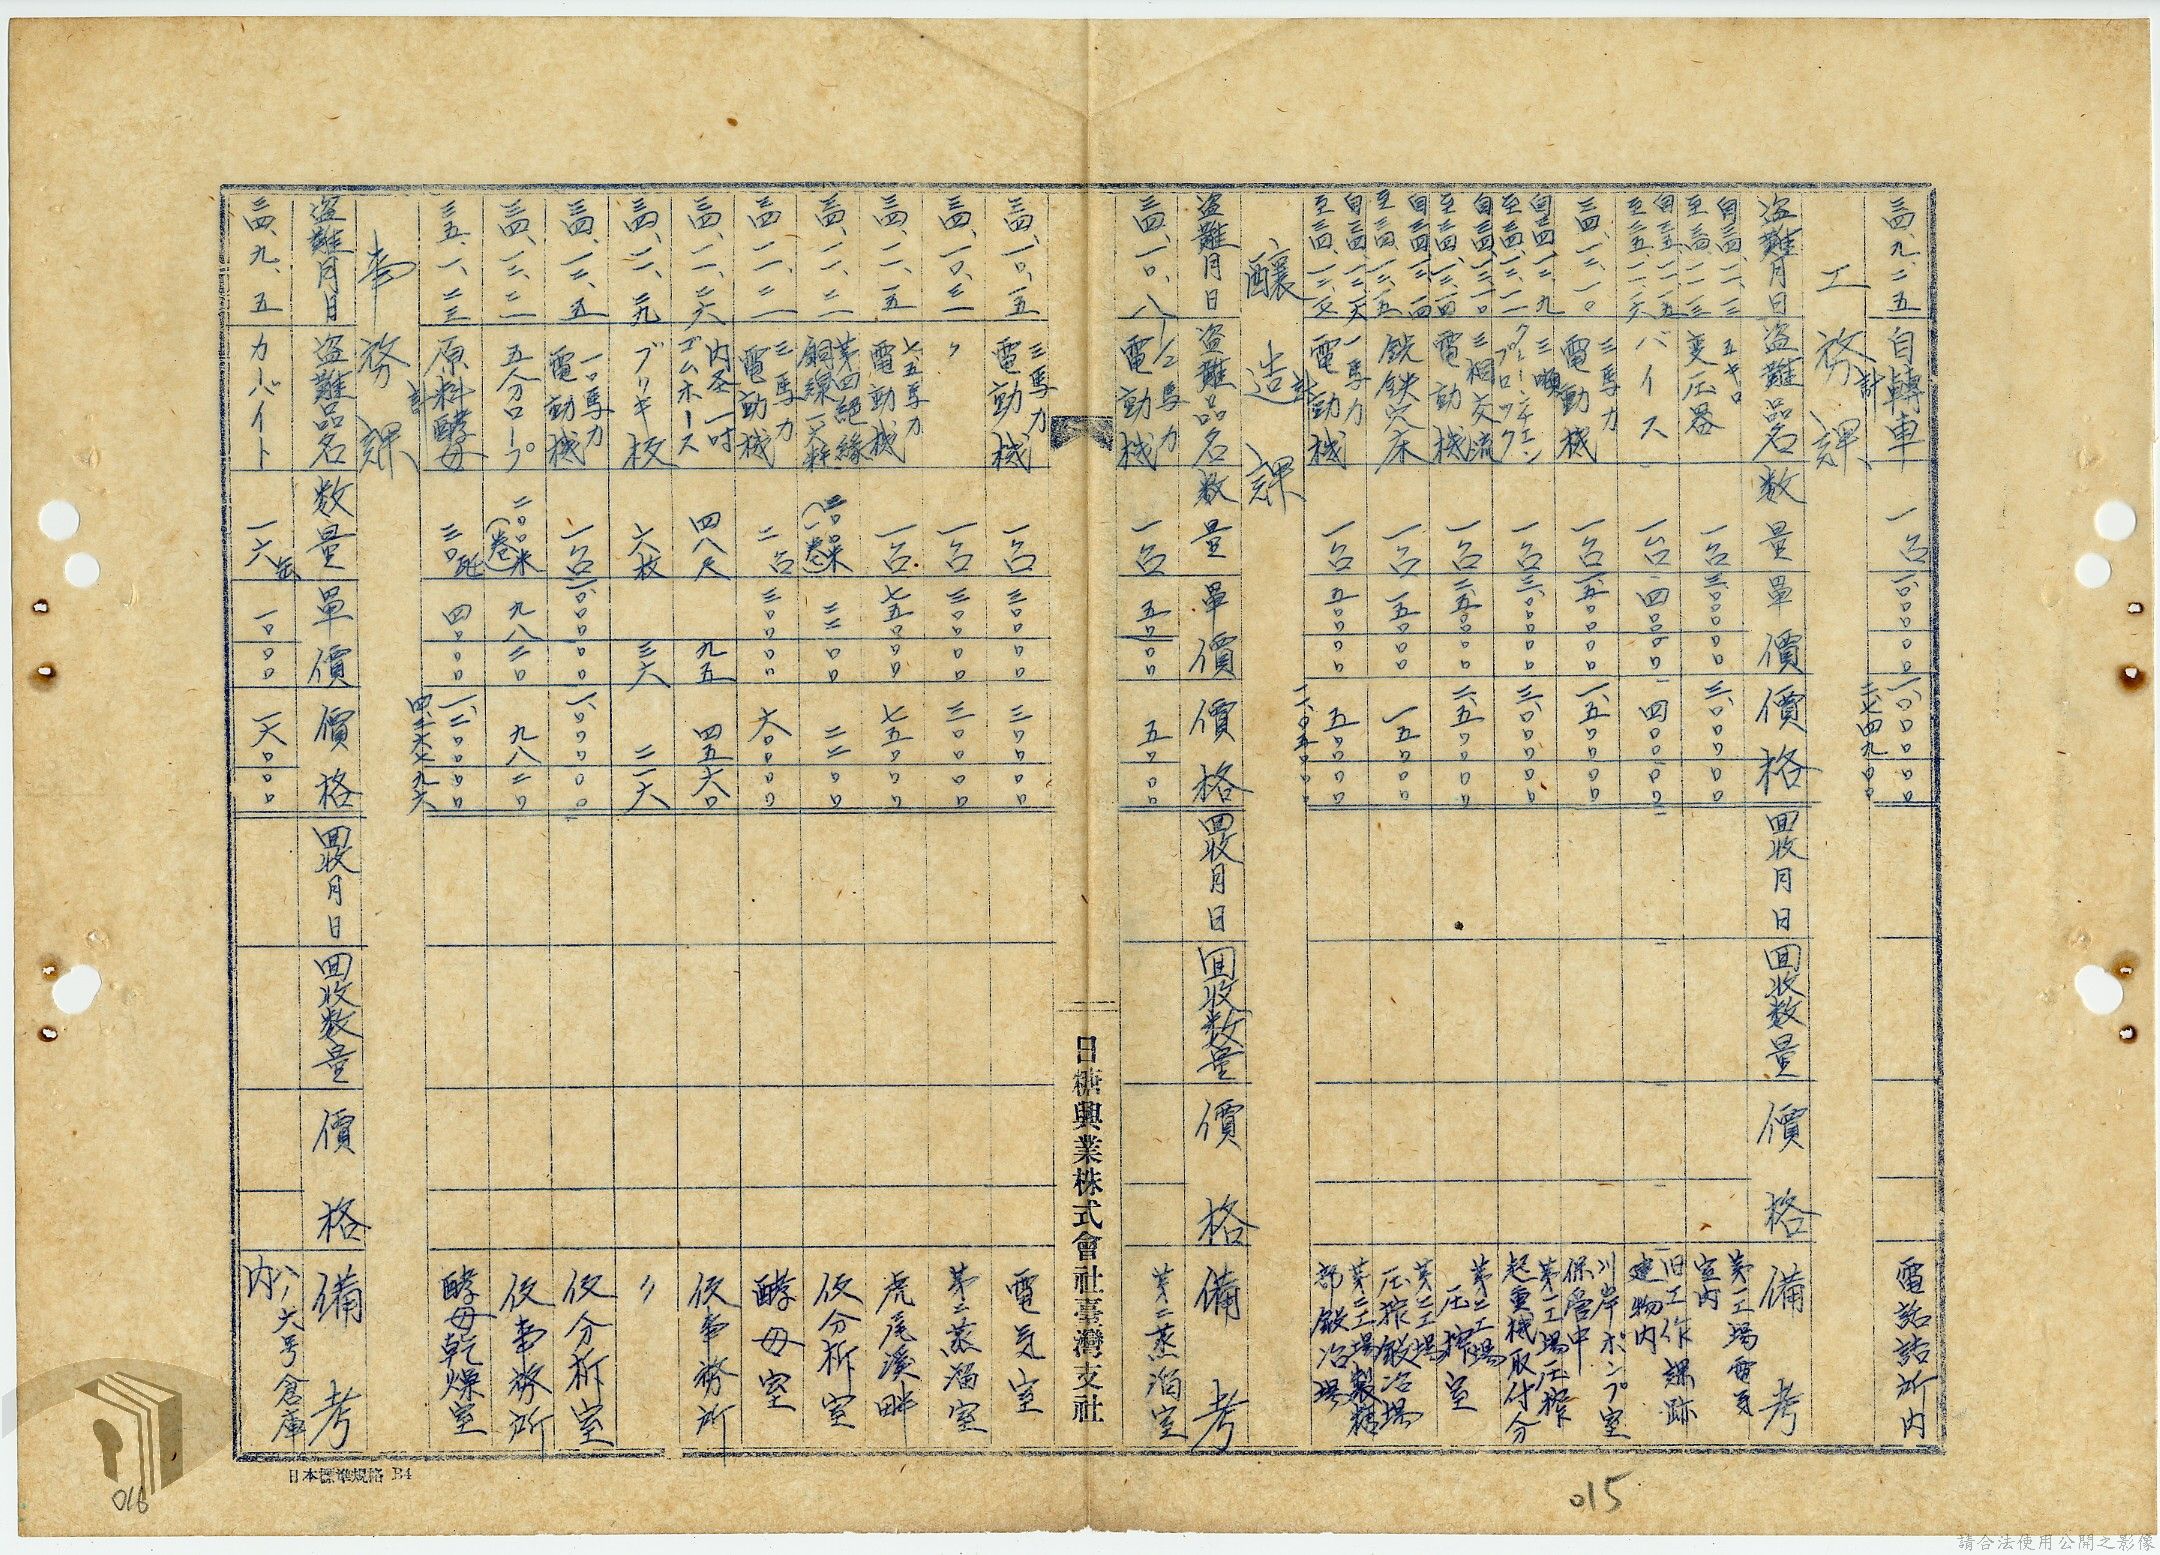 三四、九、二五 自轉車 一台 一、〇〇〇〇〇 一、〇〇〇〇〇 電話詰所内
計
工務課
盗難月日 盗難品名 数量 單價 價格 回收月日 回收数量 價格 備考
五キロ 変圧器 一台 三、〇〇〇〇〇 三、〇〇〇〇〇 第一工場電気室内
バイス 一台 四〇〇〇〇 四〇〇〇〇 旧工作課跡建物内
三四、一二、一〇 三馬力電動機 一台 一、五〇〇〇〇 一、五〇〇〇〇 川岸ポンプ室保管中
三噸 チェーンブロック 一台 三、〇〇〇〇〇 三、〇〇〇〇〇 第一工場圧搾起重機取付分
三相交流電動機 一台 二、五〇〇〇〇 二、五〇〇〇〇 第二工場圧搾室
銑鉄穴床 一台 一五〇〇〇 一五〇〇〇 第二工場圧搾鍛冶場
一馬力電動機 一台 五〇〇〇〇 五〇〇〇〇 第二工場製糖部鍛冶場
計
釀造課
盗難月日 盗難品名 数量 單價 價格 回收月日 回收数量 價格 備考
三四、一〇、八 1/2馬力電動機 一台 五〇〇〇 五〇〇〇 第二蒸溜室
日糖興業株式會社臺灣支社
三四、一〇、一五 三馬力電動機 一台 三〇〇〇〇 三〇〇〇〇 電気室
三四、一〇、三一 〃 一台 三〇〇〇〇 三〇〇〇〇 第二蒸溜室
三四、一一、一五 七、五馬力電動機 一台 七五〇〇〇 七五〇〇〇 虎尾溪畔
三四、一一、二一 第四絕緣銅線 二〇〇米(一巻) 二二〇〇 二二〇〇 仮分析室
三四、一一、二一 三馬力電動機 二台 三〇〇〇〇 六〇〇〇〇 酵母室
三四、一一、二六 内径一吋ゴムホース 四八尺 九五 四五六〇 仮事務所
三四、一一、二九 ブリキ板 六枚 三六 二一六 〃
三四、一二、五 一〇馬力電動機 一台 一、〇〇〇〇〇 一、〇〇〇〇〇 仮分析室
三四、一二、二一 五分ロープ 二〇〇米(一巻) 九八二〇 九八二〇 仮事務所
三五、一、二三 原料酵母 三〇瓩 四〇〇〇 一、二〇〇〇〇 酵母乾燥室
計
事務課
盗難月日 盗難品名 数量 單價 價格 回收月日 回收数量 價格 備考
三四、九、五 カーバイト 一六缶 一〇〇〇 一六〇〇〇 八ノ六号倉庫内
日本標準規格 B4
015
016
請合法使用公開之影像